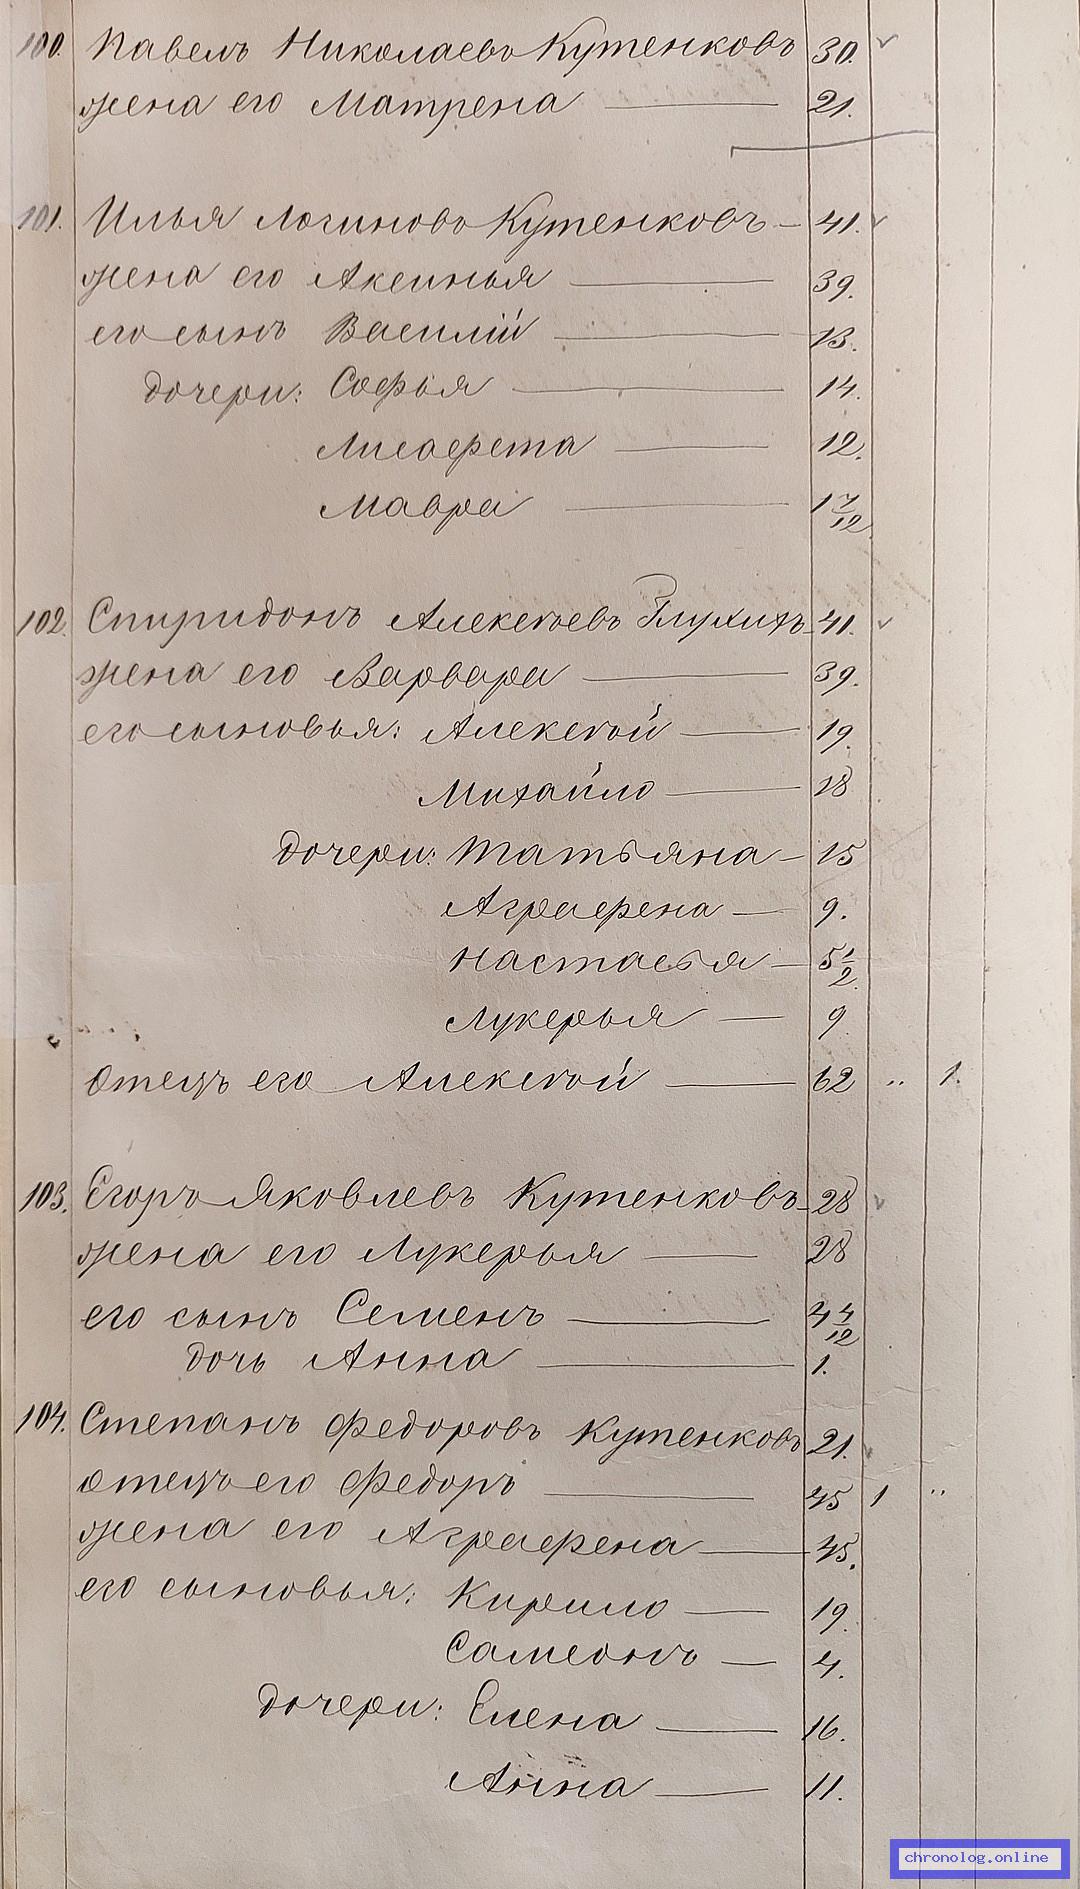 100. Павелъ Николаевъ Кутенковъ 30.
жена его Матрена 21.
101. Илья Логиновъ Кутенковъ 41.
жена его Аксинья 39.
его сынъ Василій 13.
дочери: Софья 14.
Лисафета 12.
Мавра 1 7/12
102. Спиридонъ Алексѣевъ Глухихъ 41.
жена его Варвара 39.
его сыновья: Алексѣй 19.
Михайло 18
дочери: Татьяна 15
Аграфена 9.
Настасья 5 1/2.
Лукерья 9
отецъ его Алексѣй 62 " 1.
103. Егоръ Яковлевъ Кутенковъ 28
жена его Лукерья 28
его сынъ Семенъ 4 4/12
дочь Анна 1.
104. Степанъ Федоровъ Кутенковъ 21.
отецъ его Федоръ 45 1 "
жена его Аграфена 45.
его сыновья: Кирило 19.
Самсонъ 4.
дочери: Елена 16.
Анна 11.
chronolog.online